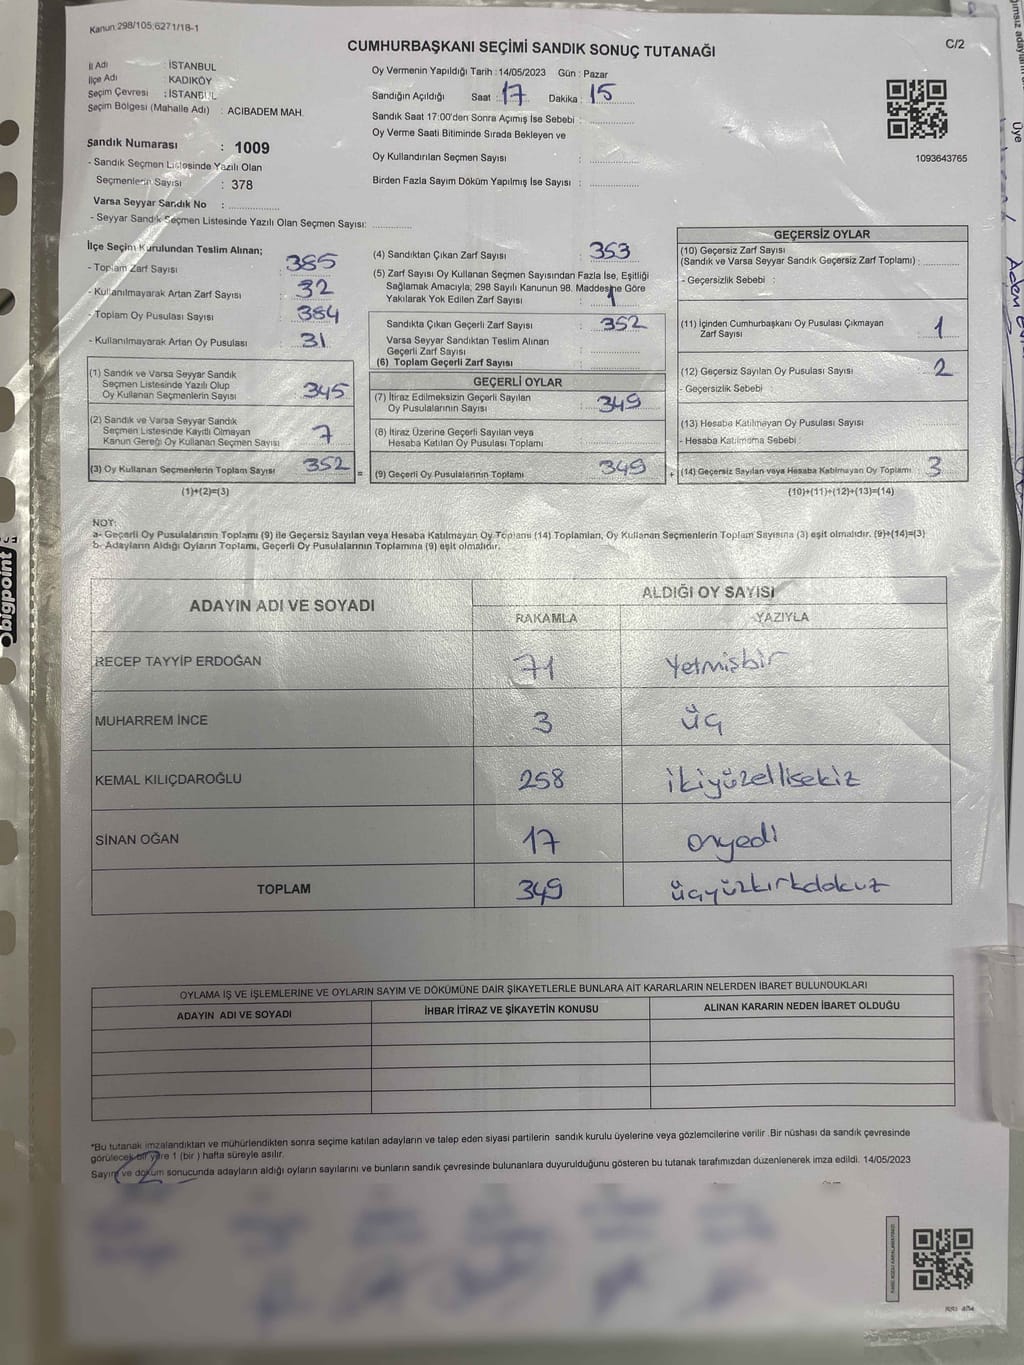 Kanun:298/105;6271/18-1
C/2
CUMHURBAŞKANI SEÇİMİ SANDIK SONUÇ TUTANAĞI
İl Adı : İSTANBUL
İlçe Adı : KADIKÖY
Seçim Çevresi : İSTANBUL
Seçim Bölgesi (Mahalle Adı) : ACIBADEM MAH.
Sandık Numarası : 1009
- Sandık Seçmen Listesinde Yazılı Olan
Seçmenlerin Sayısı : 378
Varsa Seyyar Sandık No :
- Seyyar Sandık Seçmen Listesinde Yazılı Olan Seçmen Sayısı:
Oy Vermenin Yapıldığı Tarih : 14/05/2023 Gün : Pazar
Sandığın Açıldığı Saat : 17 Dakika : 15
Sandık Saat 17:00'den Sonra Açımış İse Sebebi :
Oy Verme Saati Bitiminde Sırada Bekleyen ve
Oy Kullandırılan Seçmen Sayısı :
Birden Fazla Sayım Döküm Yapılmış İse Sayısı :
1093643765
İlçe Seçim Kurulundan Teslim Alınan;
- Toplam Zarf Sayısı : 385
- Kullanılmayarak Artan Zarf Sayısı : 32
- Toplam Oy Pusulası Sayısı : 384
- Kullanılmayarak Artan Oy Pusulası : 31
(1) Sandık ve Varsa Seyyar Sandık
Seçmen Listesinde Yazılı Olup
Oy Kullanan Seçmenlerin Sayısı : 345
(2) Sandık ve Varsa Seyyar Sandık
Seçmen Listesinde Kayıtlı Olmayan
Kanun Gereği Oy Kullanan Seçmen Sayısı : 7
(3) Oy Kullanan Seçmenlerin Toplam Sayısı : 352 =
(1)+(2)=(3)
(4) Sandıktan Çıkan Zarf Sayısı : 353
(5) Zarf Sayısı Oy Kullanan Seçmen Sayısından Fazla İse, Eşitliği
Sağlamak Amacıyla; 298 Sayılı Kanunun 98. Maddesine Göre
Yakılarak Yok Edilen Zarf Sayısı : 1
Sandıkta Çıkan Geçerli Zarf Sayısı : 352
Varsa Seyyar Sandıktan Teslim Alınan
Geçerli Zarf Sayısı :
(6) Toplam Geçerli Zarf Sayısı :
GEÇERLİ OYLAR
(7) İtiraz Edilmeksizin Geçerli Sayılan
Oy Pusulalarının Sayısı : 349
(8) İtiraz Üzerine Geçerli Sayılan veya
Hesaba Katılan Oy Pusulası Toplamı :
(9) Geçerli Oy Pusulalarının Toplamı : 349 +
GEÇERSİZ OYLAR
(10) Geçersiz Zarf Sayısı
(Sandık ve Varsa Seyyar Sandık Geçersiz Zarf Toplamı) :
- Geçersizlik Sebebi :
(11) İçinden Cumhurbaşkanı Oy Pusulası Çıkmayan
Zarf Sayısı : 1
(12) Geçersiz Sayılan Oy Pusulası Sayısı : 2
- Geçersizlik Sebebi :
(13) Hesaba Katılmayan Oy Pusulası Sayısı :
- Hesaba Katılmama Sebebi :
(14) Geçersiz Sayılan veya Hesaba Katılmayan Oy Toplamı : 3
(10)+(11)+(12)+(13)=(14)
NOT:
a- Geçerli Oy Pusulalarının Toplamı (9) ile Geçersiz Sayılan veya Hesaba Katılmayan Oy Toplamı (14) Toplamları, Oy Kullanan Seçmenlerin Toplam Sayısına (3) eşit olmalıdır. (9)+(14)=(3)
b- Adayların Aldığı Oyların Toplamı, Geçerli Oy Pusulalarının Toplamına (9) eşit olmalıdır.
ADAYIN ADI VE SOYADI
ALDIĞI OY SAYISI
RAKAMLA
YAZIYLA
RECEP TAYYİP ERDOĞAN 71 Yetmişbir
MUHARREM İNCE 3 üç
KEMAL KILIÇDAROĞLU 258 ikiyüzellisekiz
SİNAN OĞAN 17 onyedi
TOPLAM 349 üçyüzkırkdokuz
OYLAMA İŞ VE İŞLEMLERİNE VE OYLARIN SAYIM VE DÖKÜMÜNE DAİR ŞİKAYETLERLE BUNLARA AİT KARARLARIN NELERDEN İBARET BULUNDUKLARI
ADAYIN ADI VE SOYADI
İHBAR İTİRAZ VE ŞİKAYETİN KONUSU
ALINAN KARARIN NEDEN İBARET OLDUĞU
*Bu tutanak imzalandıktan ve mühürlendikten sonra seçime katılan adayların ve talep eden siyasi partilerin sandık kurulu üyelerine veya gözlemcilerine verilir .Bir nüshası da sandık çevresinde
görülecek bir yere 1 (bir ) hafta süreyle asılır.
Sayım ve döküm sonucunda adayların aldığı oyların sayılarını ve bunların sandık çevresinde bulunanlara duyurulduğunu gösteren bu tutanak tarafımızdan düzenlenerek imza edildi. 14/05/2023
bigpoint
Üye